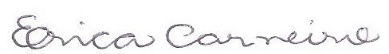 Erica Carneiro